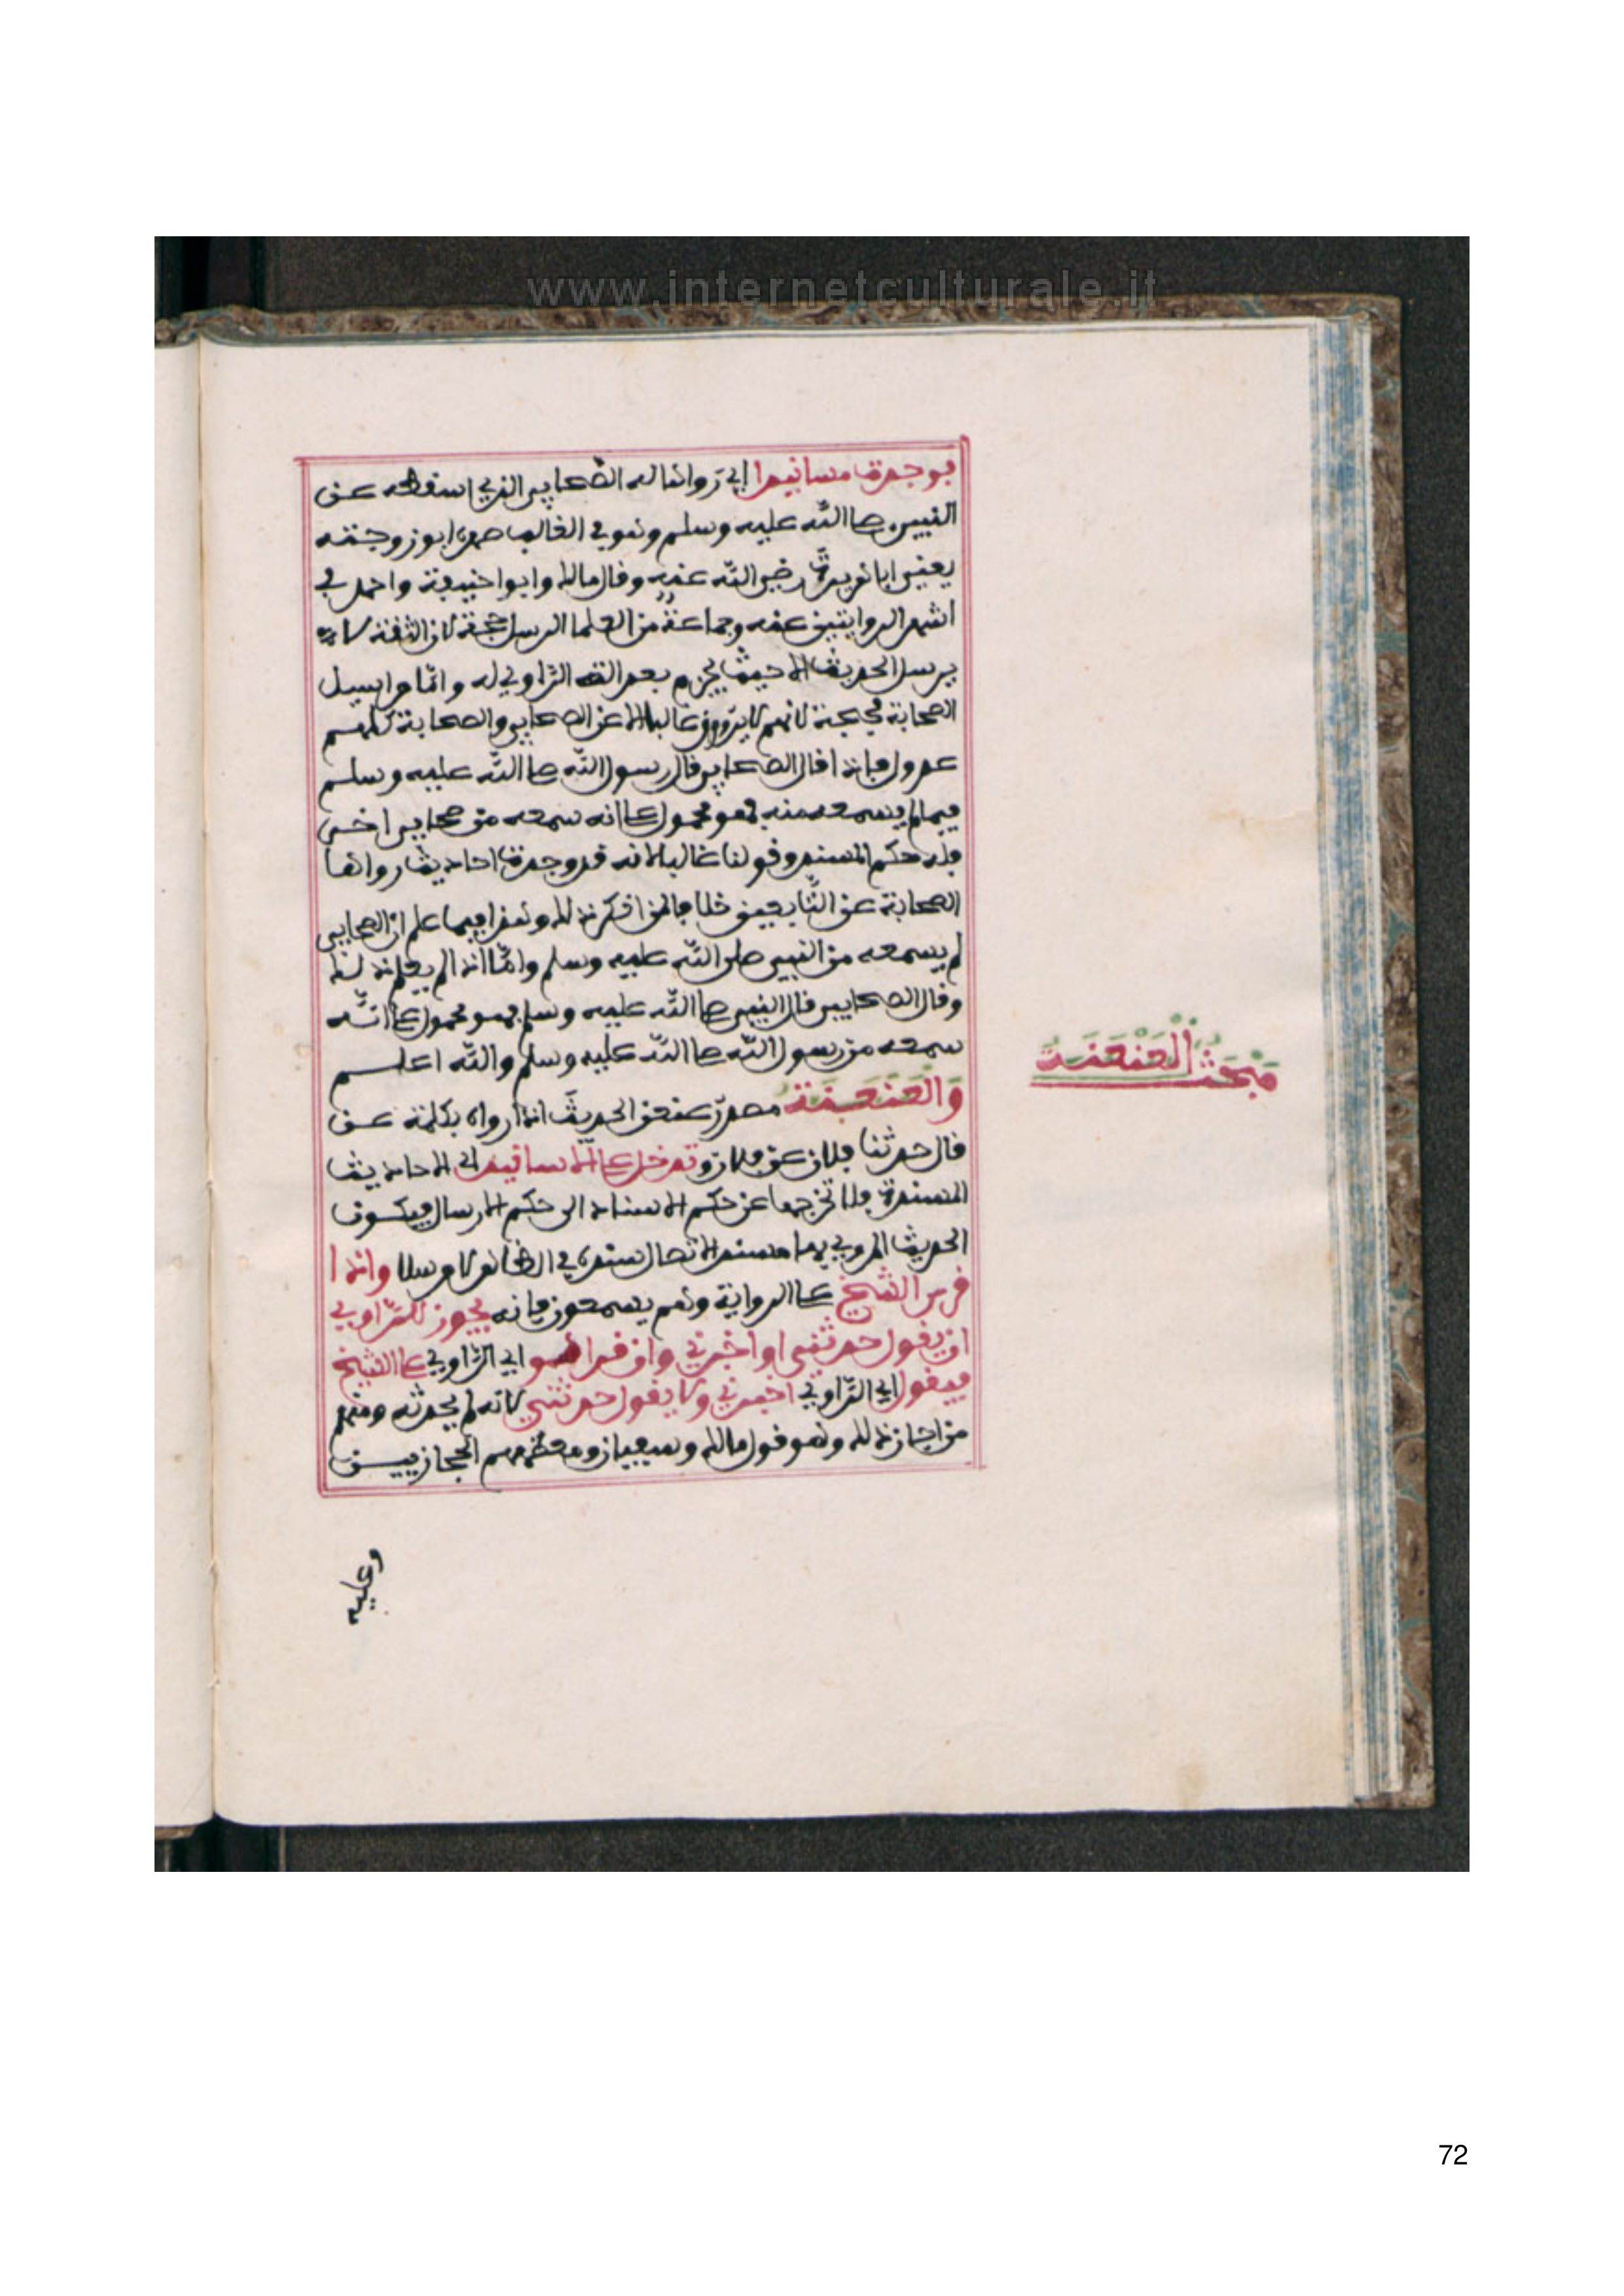 www.internetculturale.it
فوجدت مسانيدا اي رواها له الصحابي الذي اسقطه عن
النبي صلى الله عليه وسلم وهو في الغالب صهره ابو زوجته
يعني ابا هريرة رضي الله عنه وقال مالك وابوا حنيفة واحمد في
اشهر الروايتين عنه وجماعة من العلما المرسل حجة لان الثقة لا
يرسل الحديث الا حيث يجزم بعدالة الراوي له واما مراسيل
الصحابة فحجة لانهم لا يروون غالبا الا عن الصحابي والصحابة كلهم
عدول فاذا قال الصحابي قال رسول الله صلى الله عليه وسلم
فيما لم يسمعه منه فهو محمول على انه سمعه من صحابي اخر
فله حكم المسند وقولنا غالبا لانه قد وجدت احاديث رواها
الصحابة عن التابعين خلافا لمن انكر ذلك وهذا فيما علم ان الصحابي
لم يسمعه من النبي صلى الله عليه وسلم واما اذا لم يعلم ذلك
وقال الصحابي قال النبي صلى الله عليه وسلم فهو محمول على انه
سمعه من رسول الله صلى الله عليه وسلم والله اعلم
مَبْحَثُ الْعَنْعَنَةِ
وَالْعَنْعَنَةُ مصدر عنعن الحديث اذا رواه بكلمة عن
قال حدثنا فلان عن فلان وتدخل على الاسانيد اي الاحاديث
المسندة فلا تخرجها عن حكم الاسناد الى حكم الارسال فيكون
الحديث المروي بها مسندا لاتصال سنده في الظاهر لا مرسلا واذا
قرا الشيخ على الرواية وهم يسمعون فانه يجوز للراوي
ان يقول حدثني او اخبرني وان قرا هو اي الراوي على الشيخ
فيقول اي الراوي اخبرني ولا يقول حدثني لانه لم يحدثه ومنهم
من اجاز ذلك وهو قول مالك وسفيان ومعظم الحجازيين
وعليه
72